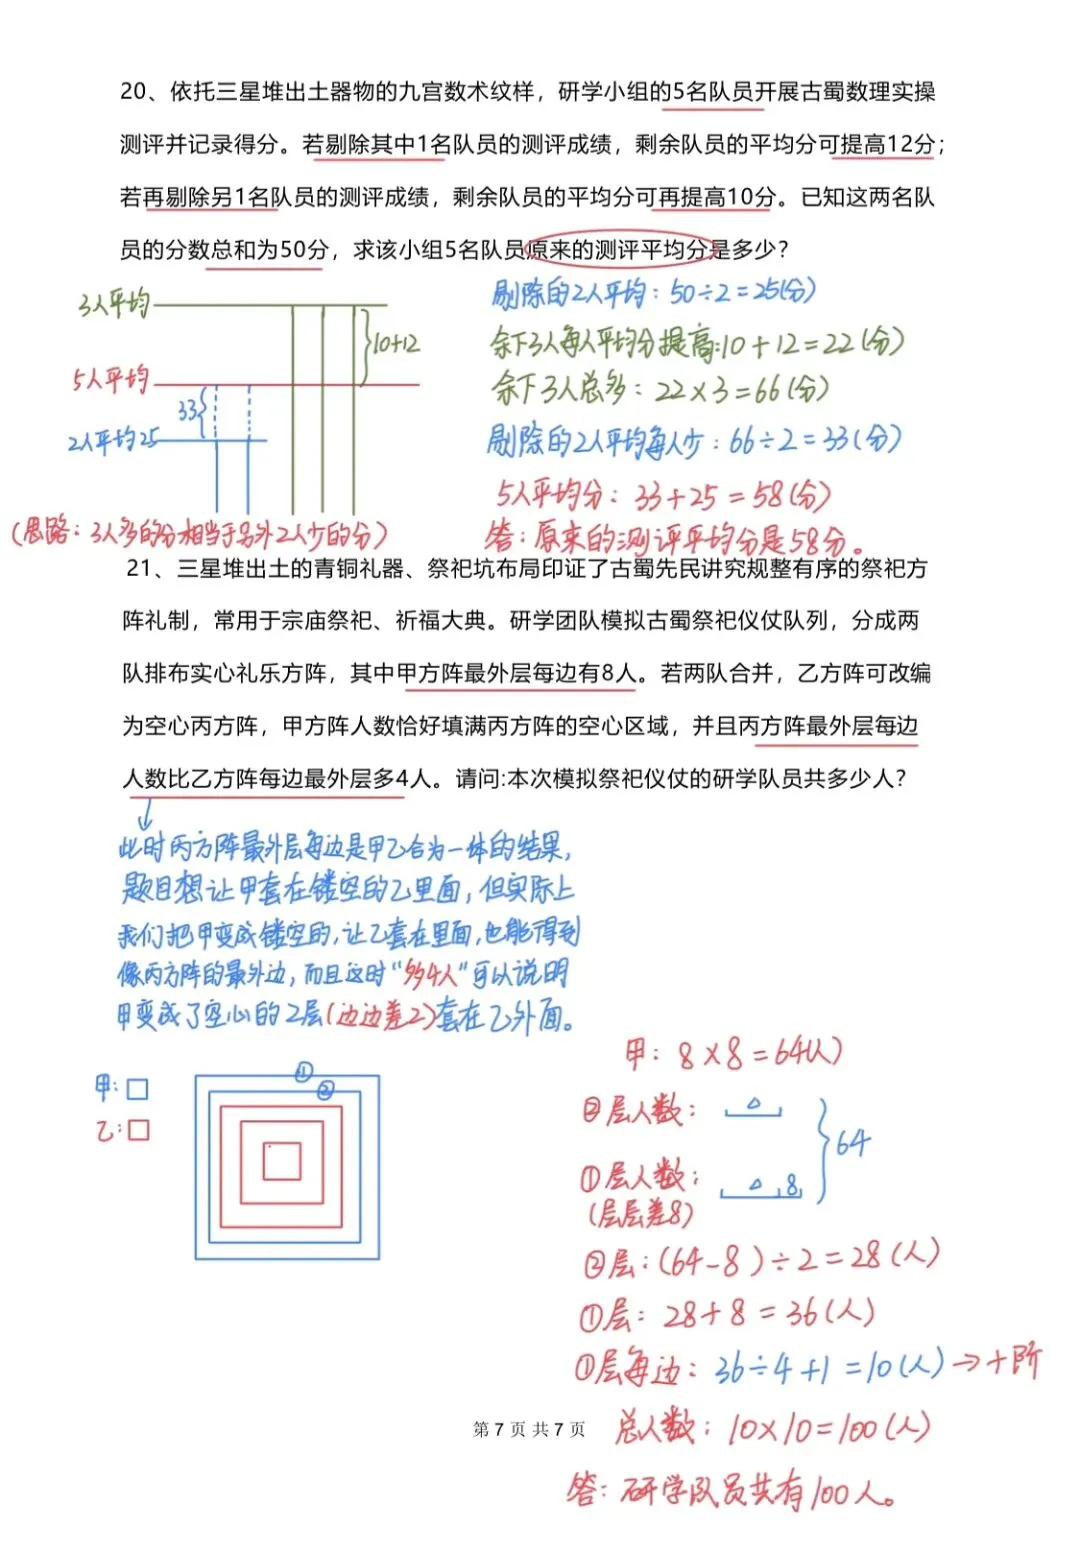 20、依托三星堆出土器物的九宫数术纹样，研学小组的5名队员开展古蜀数理实操
测评并记录得分。若剔除其中1名队员的测评成绩，剩余队员的平均分可提高12分；
若再剔除另1名队员的测评成绩，剩余队员的平均分可再提高10分。已知这两名队
员的分数总和为50分，求该小组5名队员原来的测评平均分是多少？
3人平均
10+12
5人平均
33
2人平均25
(思路：3人多的分相当于另外2人少的分)
剔除的2人平均：50÷2=25(分)
余下3人每人平均分提高：10+12=22(分)
余下3人总多：22×3=66(分)
剔除的2人平均每人少：66÷2=33(分)
5人平均分：33+25=58(分)
答：原来的测评平均分是58分。
21、三星堆出土的青铜礼器、祭祀坑布局印证了古蜀先民讲究规整有序的祭祀方
阵礼制，常用于宗庙祭祀、祈福大典。研学团队模拟古蜀祭祀仪仗队列，分成两
队排布实心礼乐方阵，其中甲方阵最外层每边有8人。若两队合并，乙方阵可改编
为空心丙方阵，甲方阵人数恰好填满丙方阵的空心区域，并且丙方阵最外层每边
人数比乙方阵每边最外层多4人。请问:本次模拟祭祀仪仗的研学队员共多少人？
此时丙方阵最外层每边是甲乙合为一体的结果，
题目想让甲套在镂空的乙里面，但实际上
我们把甲变成镂空的，让乙套在里面，也能得到
像丙方阵的最外边，而且这时“多4人”可以说明
甲变成了空心的2层(边边差2)套在乙外面。
甲：
乙：
①
②
甲：8×8=64(人)
②层人数：△
64
①层人数：△ 8
(层层差8)
②层：(64-8)÷2=28(人)
①层：28+8=36(人)
①层每边：36÷4+1=10(人)→十阶
总人数：10×10=100(人)
答：研学队员共有100人。
第 7 页 共 7 页